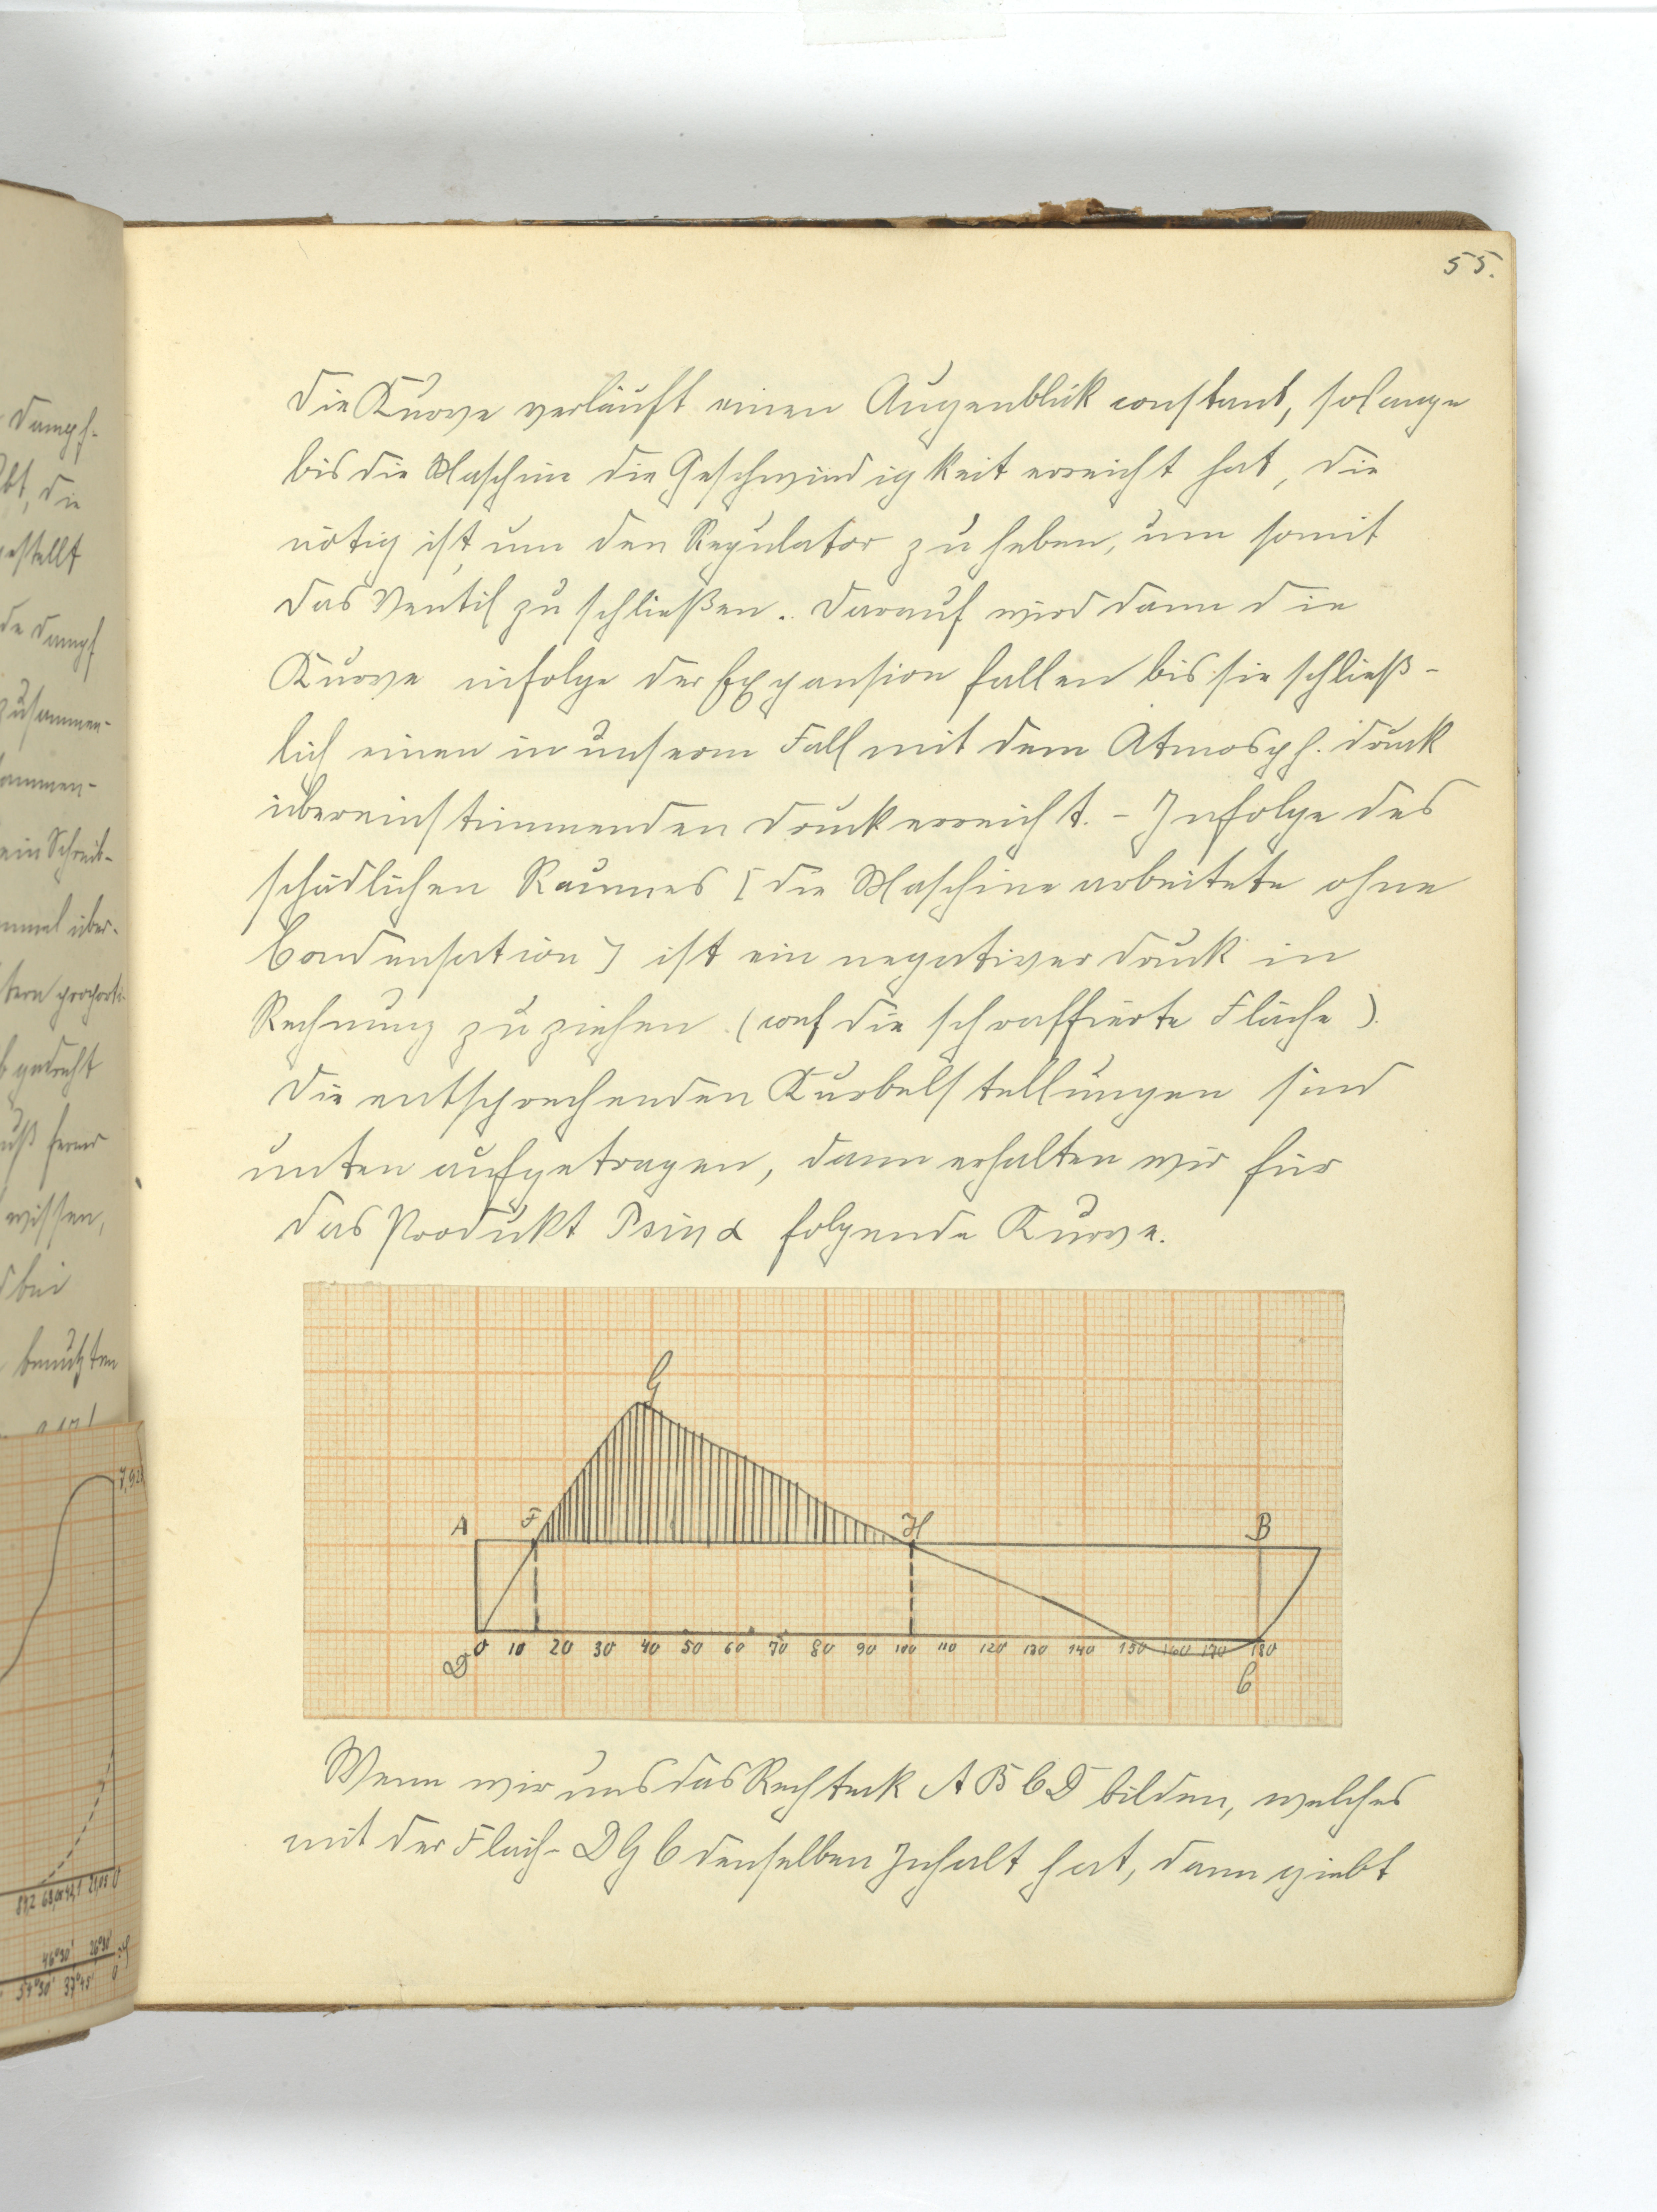 55.
Die Kurve verläuft einen Augenblick constant, solange
bis die Maschine die Geschwindigkeit erreicht hat, die
nötig ist, um den Regulator zu heben, um somit
das Ventil zu schließen. Darauf wird dann die
Kurve infolge der Expansion fallen bis sie schließ-
lich einen in unserm Fall mit dem Atmosph. druck
übereinstimmenden Druck erreicht. - Infolge des
schädlichen Raumes [die Maschine arbeitete ohne
Condensation] ist ein negativer Druck in
Rechnung zu ziehen. (conf die schraffierte Fläche).
Die entsprechenden Kurbelstellungen sind
unten aufgetragen, dann erhalten wir für
das Produkt P sin α folgende Kurve.
G
A F H B
0 10 20 30 40 50 60 70 80 90 100 110 120 130 140 150 160 170 180
D C
Wenn wir uns das Rechteck ABCD bilden, welches
mit der Fläch- DGC denselben Inhalt hat, dann giebt
Dampf-
die
gestellt
de Dampf
zusammen-
ammen-
ein Schreib-
über-
gedreht
ferner
wissen,
bei
benutzten
7,92
84,2 63,00 42,1 21,05 0
46°30' 26°30'
54°30' 37°45' 0